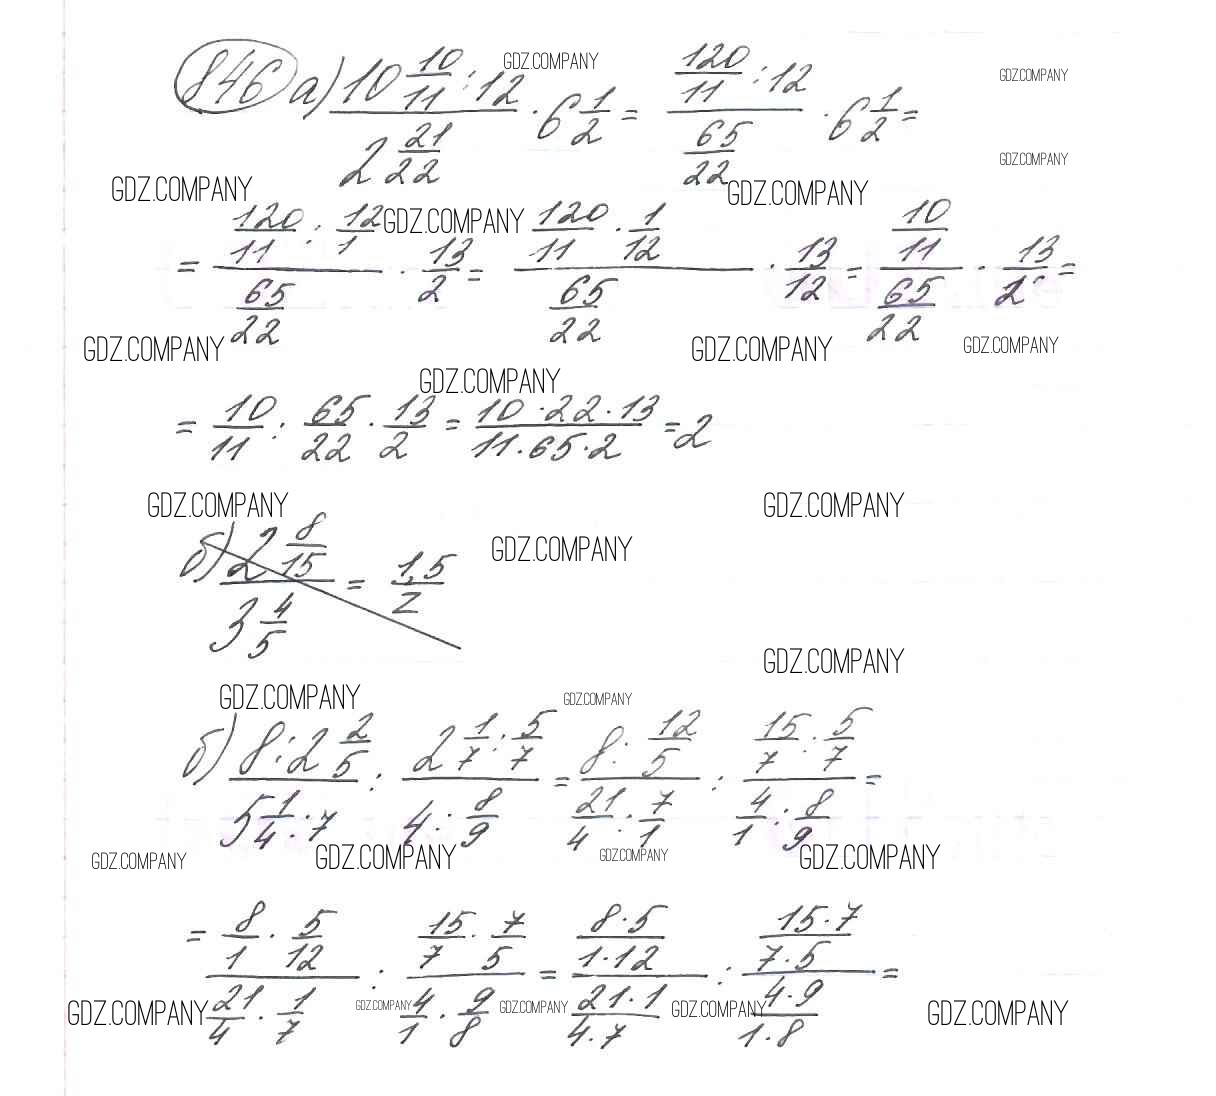 846 а) (10 10/11 : 12)/(2 21/22) · 6 1/2 = (120/11 : 12)/(65/22) · 6 1/2 =
GDZ.COMPANY GDZ.COMPANY
GDZ.COMPANY
GDZ.COMPANY GDZ.COMPANY GDZ.COMPANY
= (120/11 : 12/1)/(65/22) · 13/2 = (120/11 · 1/12)/(65/22) · 13/12 = (10/11)/(65/22) · 13/2 =
GDZ.COMPANY GDZ.COMPANY GDZ.COMPANY
GDZ.COMPANY
= 10/11 : 65/22 · 13/2 = (10 · 22 · 13)/(11 · 65 · 2) = 2
GDZ.COMPANY GDZ.COMPANY
GDZ.COMPANY
б) (2 8/15)/(3 4/5) = 1,5/2
GDZ.COMPANY
GDZ.COMPANY GDZ.COMPANY
б) (8 : 2 2/5)/(5 1/4 : 7) : (2 1/7 : 5/7)/(4 : 8/9) = (8 : 12/5)/(21/4 : 7/1) : (15/7 : 5/7)/(4/1 : 8/9) =
GDZ.COMPANY GDZ.COMPANY GDZ.COMPANY GDZ.COMPANY
= (8/1 · 5/12)/(21/4 · 1/7) : (15/7 · 7/5)/(4/1 · 9/8) = ((8 · 5)/(1 · 12))/((21 · 1)/(4 · 7)) : ((15 · 7)/(7 · 5))/((4 · 9)/(1 · 8)) =
GDZ.COMPANY GDZ.COMPANY GDZ.COMPANY GDZ.COMPANY GDZ.COMPANY